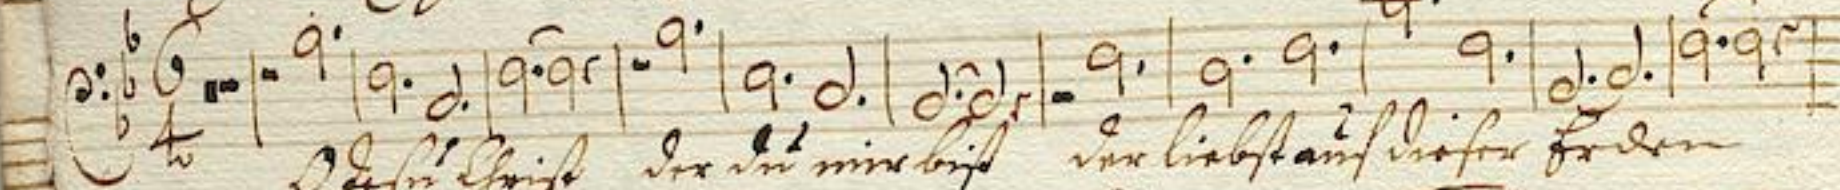 O Jesu Christ der du mir bist der liebst auf dieser Erden